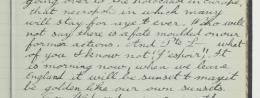 going over to the holocaust in Europe,
that necropolis in which many
will stay for aye & ever. Who will
not say there is a fate moulded on our
former actions. And I to E. what
of you I know not! Yeshov!! It
is morning now, when she leave
England it will be sunset & may it
be golden like our own sunsets.